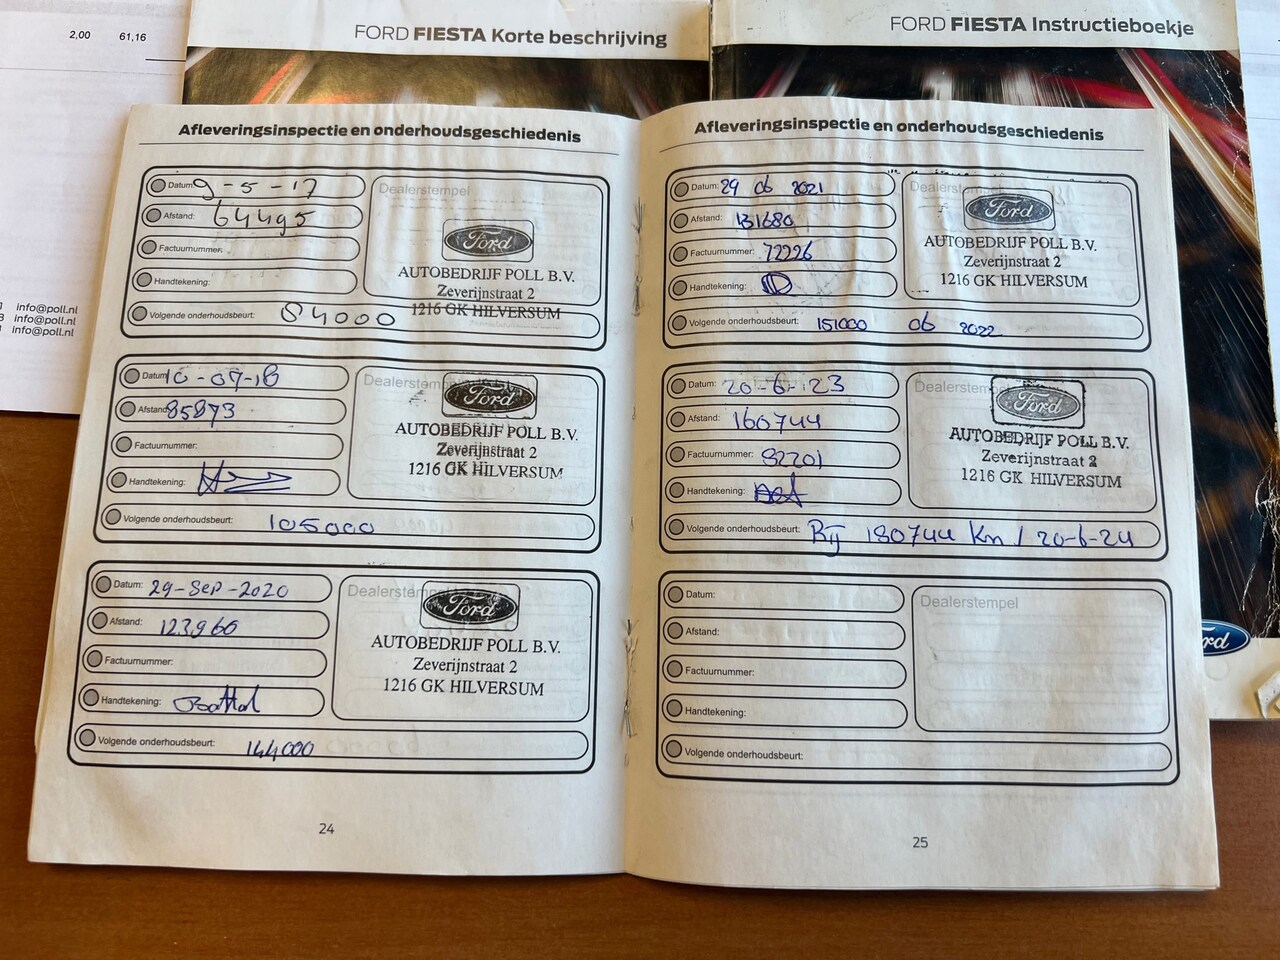 2,00 61,16
FORD FIESTA Korte beschrijving
FORD FIESTA Instructieboekje
info@poll.nl
info@poll.nl
info@poll.nl
Afleveringsinspectie en onderhoudsgeschiedenis
Datum: 9-5-17
Afstand: 64495
Factuurnummer:
Handtekening:
Volgende onderhoudsbeurt: 84000
Dealerstempel
Ford
AUTOBEDRIJF POLL B.V.
Zeverijnstraat 2
1216 GK HILVERSUM
Datum: 10-07-18
Afstand: 85873
Factuurnummer:
Handtekening:
Volgende onderhoudsbeurt: 105000
Dealerstempel
Ford
AUTOBEDRIJF POLL B.V.
Zeverijnstraat 2
1216 GK HILVERSUM
Datum: 29-Sep-2020
Afstand: 123960
Factuurnummer:
Handtekening:
Volgende onderhoudsbeurt: 144000
Dealerstempel
Ford
AUTOBEDRIJF POLL B.V.
Zeverijnstraat 2
1216 GK HILVERSUM
24
Afleveringsinspectie en onderhoudsgeschiedenis
Datum: 29 06 2021
Afstand: 131680
Factuurnummer: 72226
Handtekening:
Volgende onderhoudsbeurt: 151000 06 2022
Dealerstempel
Ford
AUTOBEDRIJF POLL B.V.
Zeverijnstraat 2
1216 GK HILVERSUM
Datum: 20-6-'23
Afstand: 160744
Factuurnummer: 82201
Handtekening:
Volgende onderhoudsbeurt: Bij 180744 Km / 20-6-24
Dealerstempel
Ford
AUTOBEDRIJF POLL B.V.
Zeverijnstraat 2
1216 GK HILVERSUM
Datum:
Afstand:
Factuurnummer:
Handtekening:
Volgende onderhoudsbeurt:
Dealerstempel
25